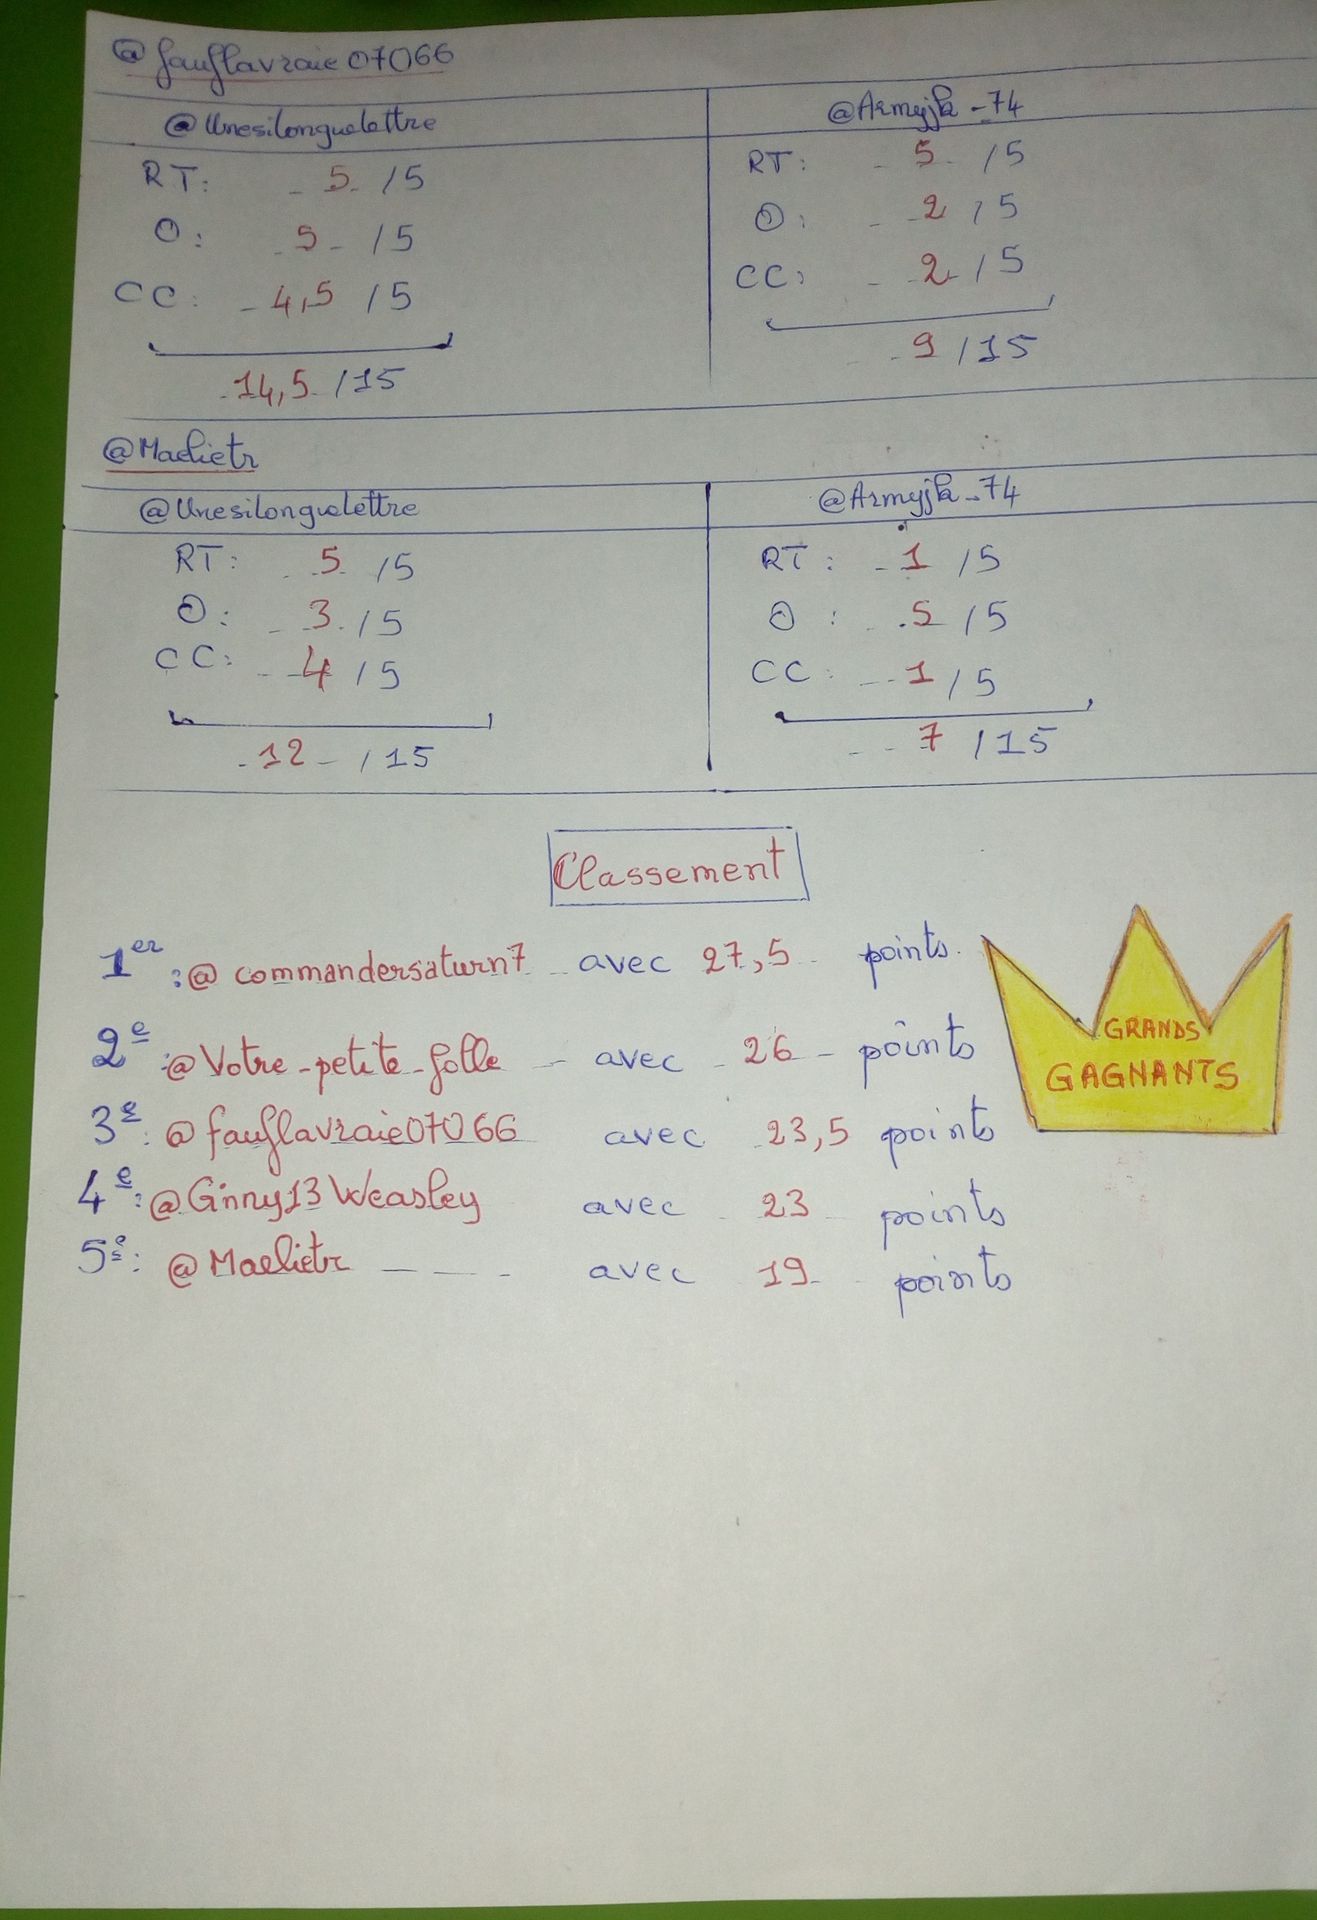 @fauflavraie07066
@Unesilonguelettre @Armyjk_74
RT: 5 /5 RT: 5 /5
O: 5 /5 O: 2 /5
CC: 4,5 /5 CC: 2 /5
14,5 /15 9 /15
@Maelietr
@Unesilonguelettre @Armyjk_74
RT: 5 /5 RT: 1 /5
O: 3 /5 O: 5 /5
CC: 4 /5 CC: 1 /5
12 /15 7 /15
Classement
1er: @commandersaturn7 avec 27,5 points.
2e: @Votre-petite-folle avec 26 points
3e: @fauflavraie07066 avec 23,5 points
4e: @Ginny13Weasley avec 23 points
5e: @Maelietr avec 19 points
GRANDS
GAGNANTS